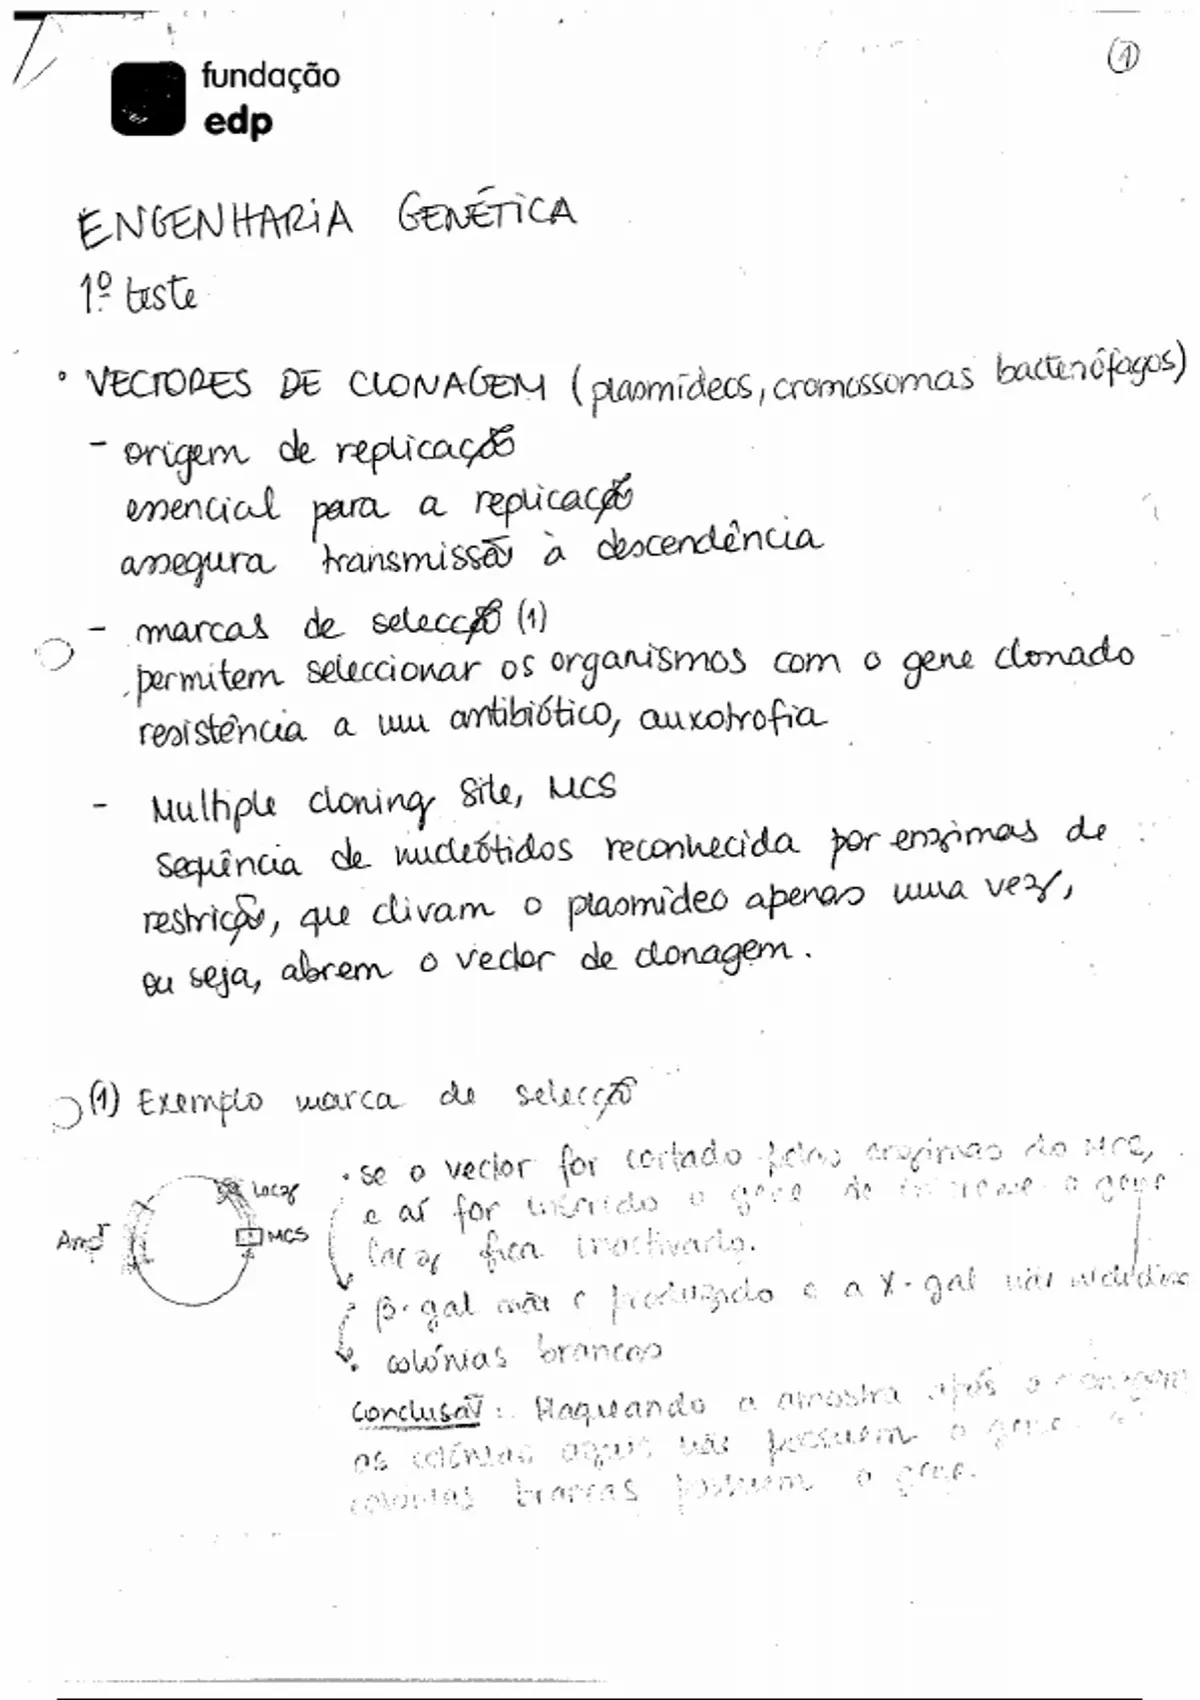 ①
fundação
edp
ENGENHARIA GENÉTICA
1º teste
• VECTORES DE CLONAGEM (plasmídeos, cromossomas bacteriófagos)
- origem de replicação
essencial para a replicação
assegura transmissão à descendência
- marcas de selecção (1)
permitem seleccionar os organismos com o gene clonado
resistência a um antibiótico, auxotrofia
- Multiple cloning site, MCS
sequência de nucleótidos reconhecida por enzimas de
restrição, que clivam o plasmídeo apenas uma vez,
ou seja, abrem o vector de clonagem.
(1) Exemplo marca de selecção
lacZ
Ampr
MCS
• se o vector for cortado pelas enzimas do MCS,
e aí for inserido o gene de interesse o gene
lacZ fica inactivado.
β-gal não é produzido e a X-gal não
• colónias brancas
Conclusão: Plaqueando a amostra após a clonagem
as colónias azuis não possuem o gene
colónias brancas possuem o gene.